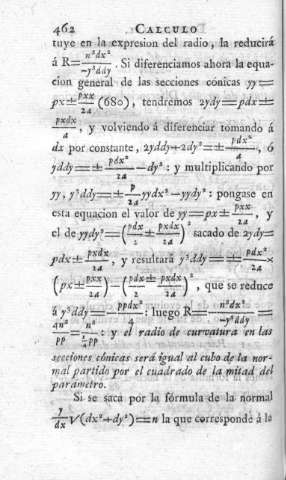 462 CALCULO
tuye en la expresion del radio, la reducirá
á R=n³dx²/-y³ddy. Si diferenciamos ahora la equa-
cion general de las secciones cónicas yy=
px±pxx/2a (680), tendremos 2ydy=pdx±
pxdx/a, y volviendo á diferenciar tomando á
dx por constante, 2yddy+2dy²=±pdx²/a, ó
yddy=±pdx²/2a-dy²: y multiplicando por
yy, y³ddy=±p/2a yydx²-yydy²: pongase en
esta equacion el valor de yy=px±pxx/2a, y
el de yydy²=(pdx/2±pxdx/2a)² sacado de 2ydy=
pdx±pxdx/a, y resultará y³ddy=±pdx²/2a×
(px±pxx/2a)-(pdx/2±pxdx/2a)², que se reduce
á y³ddy=-ppdx²/4: luego R=n³dx²/-y³ddy=
4n³/pp=n³/¼pp: y el radio de curvatura en las
secciones cónicas será igual al cubo de la nor-
mal partido por el cuadrado de la mitad del
parametro.
Si se saca por la fórmula de la normal
y/dx√(dx²+dy²)=n la que corresponde á la